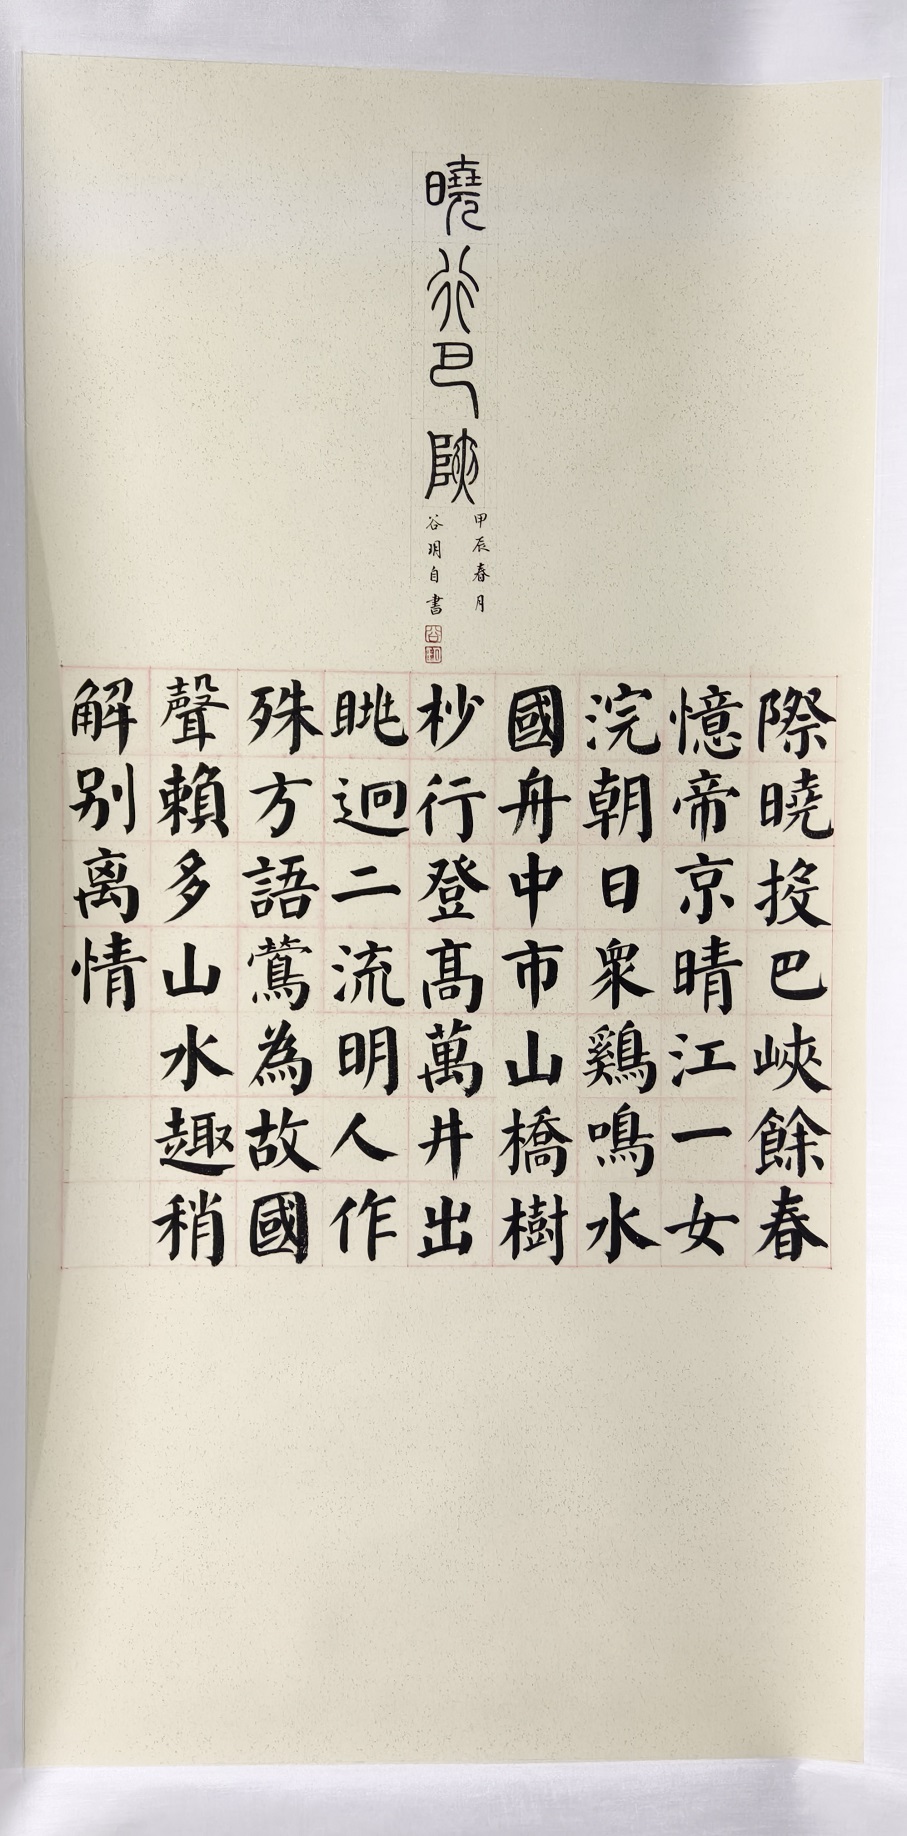 曉行巴峽
甲辰春月
谷玥自書
際曉投巴峽餘春
憶帝京晴江一女
浣朝日衆鷄鳴水
國舟中市山橋樹
杪行登高萬井出
眺迥二流明人作
殊方語鶯為故國
聲賴多山水趣稍
解别离情